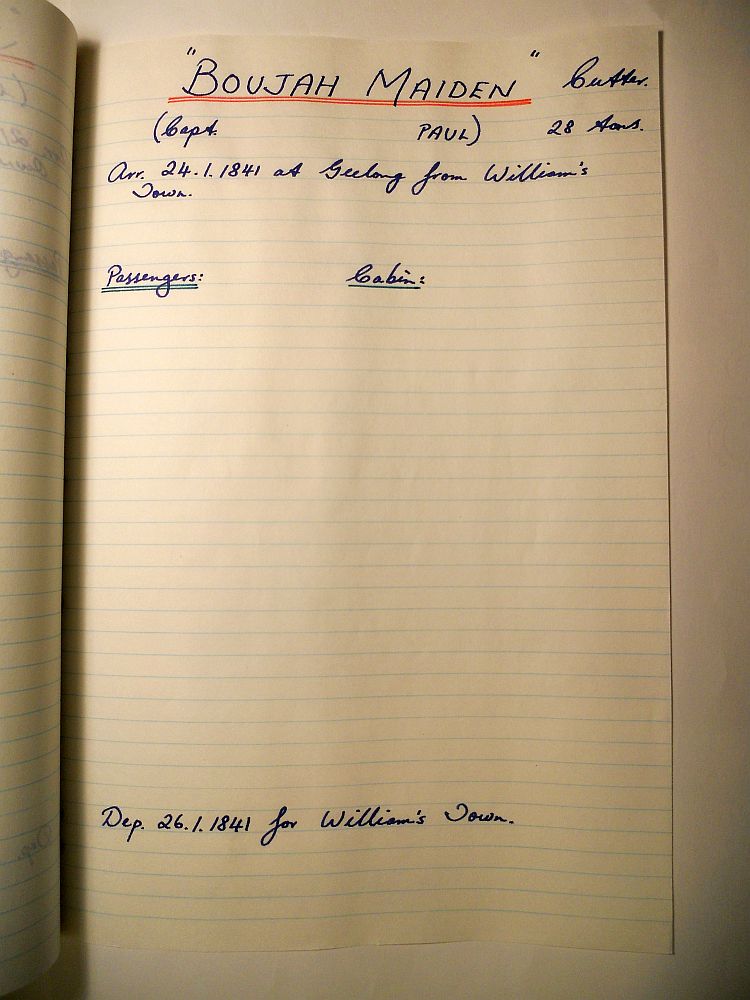 "BOUJAH MAIDEN" Cutter.
(Capt. PAUL) 28 tons.
Arr. 24.1.1841 at Geelong from William's
Town.
Passengers: Cabin:
Dep. 26.1.1841 for William's Town.
Dep.